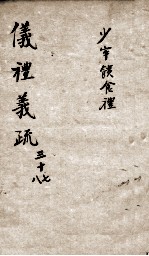 少牢饋食禮
儀禮義疏
三十七
八